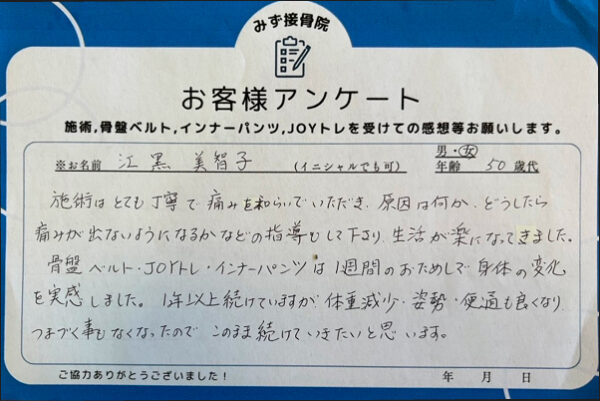 みず接骨院
お客様アンケート
施術,骨盤ベルト,インナーパンツ,JOYトレを受けての感想等お願いします。
※お名前 江黒 美智子 (イニシャルでも可) 男・女 年齢 50 歳代
施術はとても丁寧で痛みを和らいでいただき、原因は何か、どうしたら
痛みが出ないようになるかなどの指導もして下さり、生活が楽になってきました。
骨盤ベルト・JOYトレ・インナーパンツは1週間のおためしで身体の変化
を実感しました。1年以上続けていますが、体重減少・姿勢・便通も良くなり
つまづく事もなくなったので このまま続けていきたいと思います。
ご協力ありがとうございました! 年 月 日